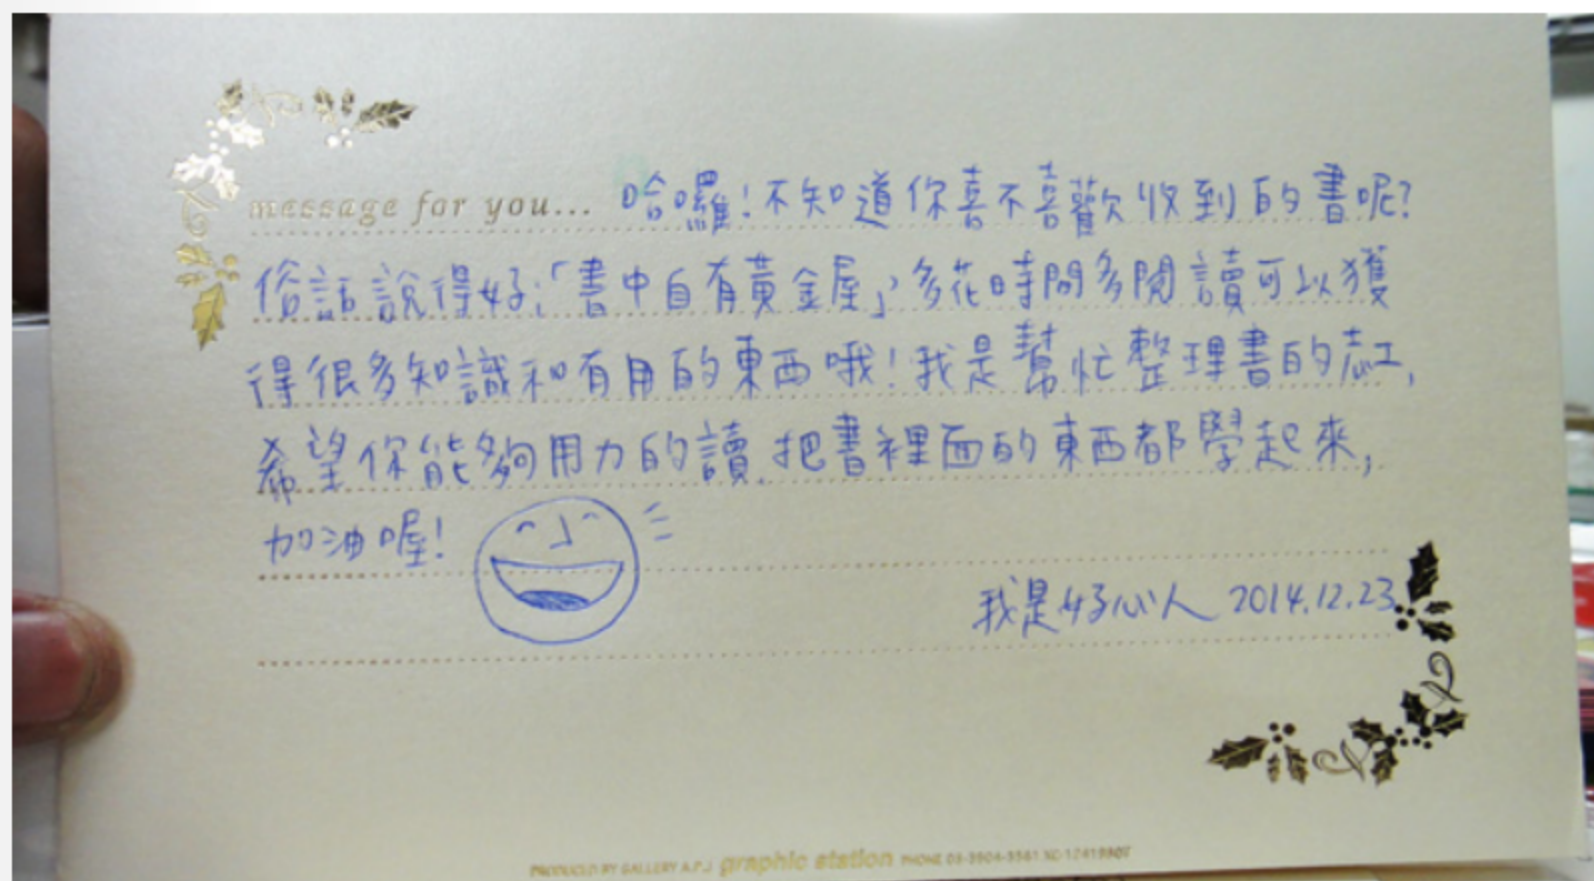 message for you... 哈囉!不知道你喜不喜歡收到的書呢?
俗話說得好:「書中自有黃金屋」,多花時間多閱讀可以獲
得很多知識和有用的東西哦!我是幫忙整理書的志工,
希望你能夠用力的讀,把書裡面的東西都學起來,
加油喔!
我是好心人 2014.12.23
PRODUCED BY GALLERY A.P.J graphic station PHONE 03-3904-3561